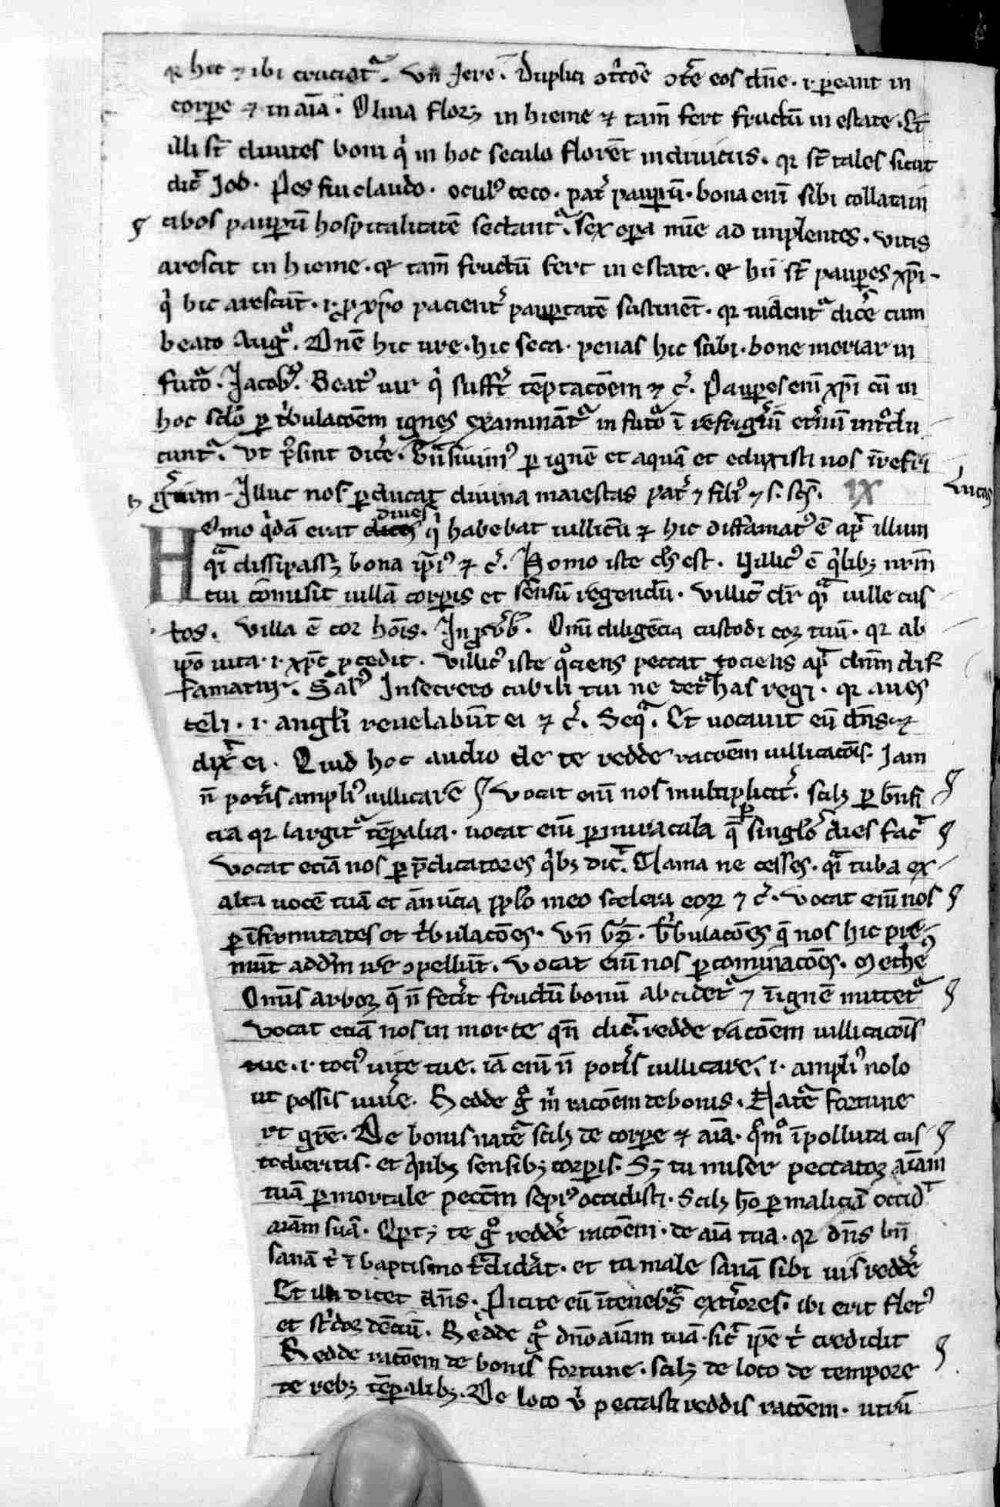 qr hic ⁊ ibi cruciat᷑. Vn̄ Jere. Duplici ꝯtͥcōe ꝯte᷑ eos dn̄e. i. ꝑeant in
corpe ⁊ in aīa. Oliua florꝫ in hieme ⁊ tam̄ fert fructū in estate. Et
illi st̄ diuites boni qͥ in hoc seculo florēt in diuiciis. qr st̄ tales sicut
dic̄ Job. Pes fui claudo. oculꝰ ceco. pat᷑ pauꝑū. bona eni᷑ sibi collata in
cibos pauꝑū hospitalitatē sectant᷑. sex oꝑa mīe ad implentes. vitis
arescit in hieme. et tam̄ fructū fert in estate. et hii st̄ pauꝑes xp̄i
qͥ hic arescūt. i. ꝓ xp̄o pacient᷑ pauꝑtatē sustinēt. qr uident᷑ dic̄e cum
beato Augͦ. Dn̄e hic ure. hic seca. penas hic scͥbi. bone moriar in
futͦo. Jacobꝰ. Beatꝰ uir qͥ suffert tēptacōem ⁊ c᷑. Pauꝑes eni᷑ xp̄i cū in
hoc sclō ꝑ tͥbulacōem ignes examinant᷑ in futͦo ī refrigͥū et᷑nū int᷑du
cunt᷑. Vt possint dic̄e. Tͣnsiuimꝰ ꝑ ignē et aquā et eduxisti nos ī refri
gͥium. Illuc nos ꝑducat diuina maiestas pat᷑ ⁊ filiꝰ ⁊ s. sc̄s. IX Lucas
Homo qͥdā erat diues qͥ habebat uillicū ⁊ hic diffamatꝰ ē apᷓ illum
qͣi dissipassꝫ bona ip̄iꝰ ⁊ c᷑. Homo iste xp̄c est. Villicꝰ ē qͥlibꝫ nrm̄
cui cōmisit uillā corꝑis et sensuū regendū. villicꝰ dr̄ qͣi uille cus
tos. Villa ē cor hoīs. In ꝓuͥb. Omī diligēcia custodi cor tuū. qr ab
ip̄o uita. i. xp̄c ꝓcedit. Villicꝰ iste qͦciens peccat tociens apᷓ dnm̄ dif
famatur. Salꝰ. In secreto cubili tui ne det᷑has regi. qr aues
celi. i. angl̄i reuelabūt ei ⁊ c᷑. Seqᷓ. Et uocauit eū dn̄s ⁊
dixͭ ei. Quid hoc audio de te redde racōem uillicacōis. Jam
n̄ pot᷑is ampliꝰ uillicare. Vocat eni᷑ nos multiplicit᷑. scilꝫ ꝑ bn̄fi
cia qr largit᷑ tēꝑalia. uocat eni᷑ ꝑ miracula q̄ ꝑ singl̄os dies fac᷑
Vocat eciā nos ꝑ p̄dicatores qͥbꝫ dic᷑. Clama ne cesses. qͣi tuba ex
alta uocē tuā et annūcia ppl̄o meo scelera eorꝝ ⁊ c᷑. Vocat eni᷑ nos
ꝑ īfirmitates et tͥbulacōes. Vn̄ Gͬg. Tͥbulacōes q̄ nos hic pre
munt ad dm̄ ire ꝯpellūt. Vocat eni᷑ nos ꝑ cominacōes. Mathe
Omis arbor q̄ n̄ fec᷑it fructū bonū abcidet᷑ ⁊ ī ignē mittet᷑
Vocat eciā nos in morte qn̄ dic᷑. redde racōem uillicacōis
tue. i. tociꝰ uite tue. iā eni᷑ n̄ pot᷑is uillicare. i. ampliꝰ nolo
ut possis uiue᷑. Redde gͦ mͥ racōem de bonis. Nature fortune
et gr̄e. De bonis nature scilꝫ de corꝑe ⁊ aīa. qͦmͦ īpolluta cus
todieritis. et qͥnqꝫ sensibꝫ corꝑis. Sꝫ tu miser peccator aīam
tuā ꝑ mortale pecc̄m sepiꝰ occidisti. Scilꝫ hō ꝑ maliciā occidͭ
aīam suā. Oportꝫ te gͦ redde᷑ racōem. de aīa tua. qr dn̄s bn̄
sanā tͥ ī baptismo tradidit. et tu male sanā sibi uis redde᷑
Et illi dicet dn̄s. Picite eū ī tenebᷓs ext᷑iores. ibi erit fletꝰ
et stͥdor dēciū. Redde gͦ dn̄o aīam tuā. sic᷑ ip̄e tͥ credidit
Redde racōem de bonis fortune. scilꝫ de loco de tempore
de rebꝫ tēꝑalibꝫ. De loco ubi peccasti reddis racōem. utrū